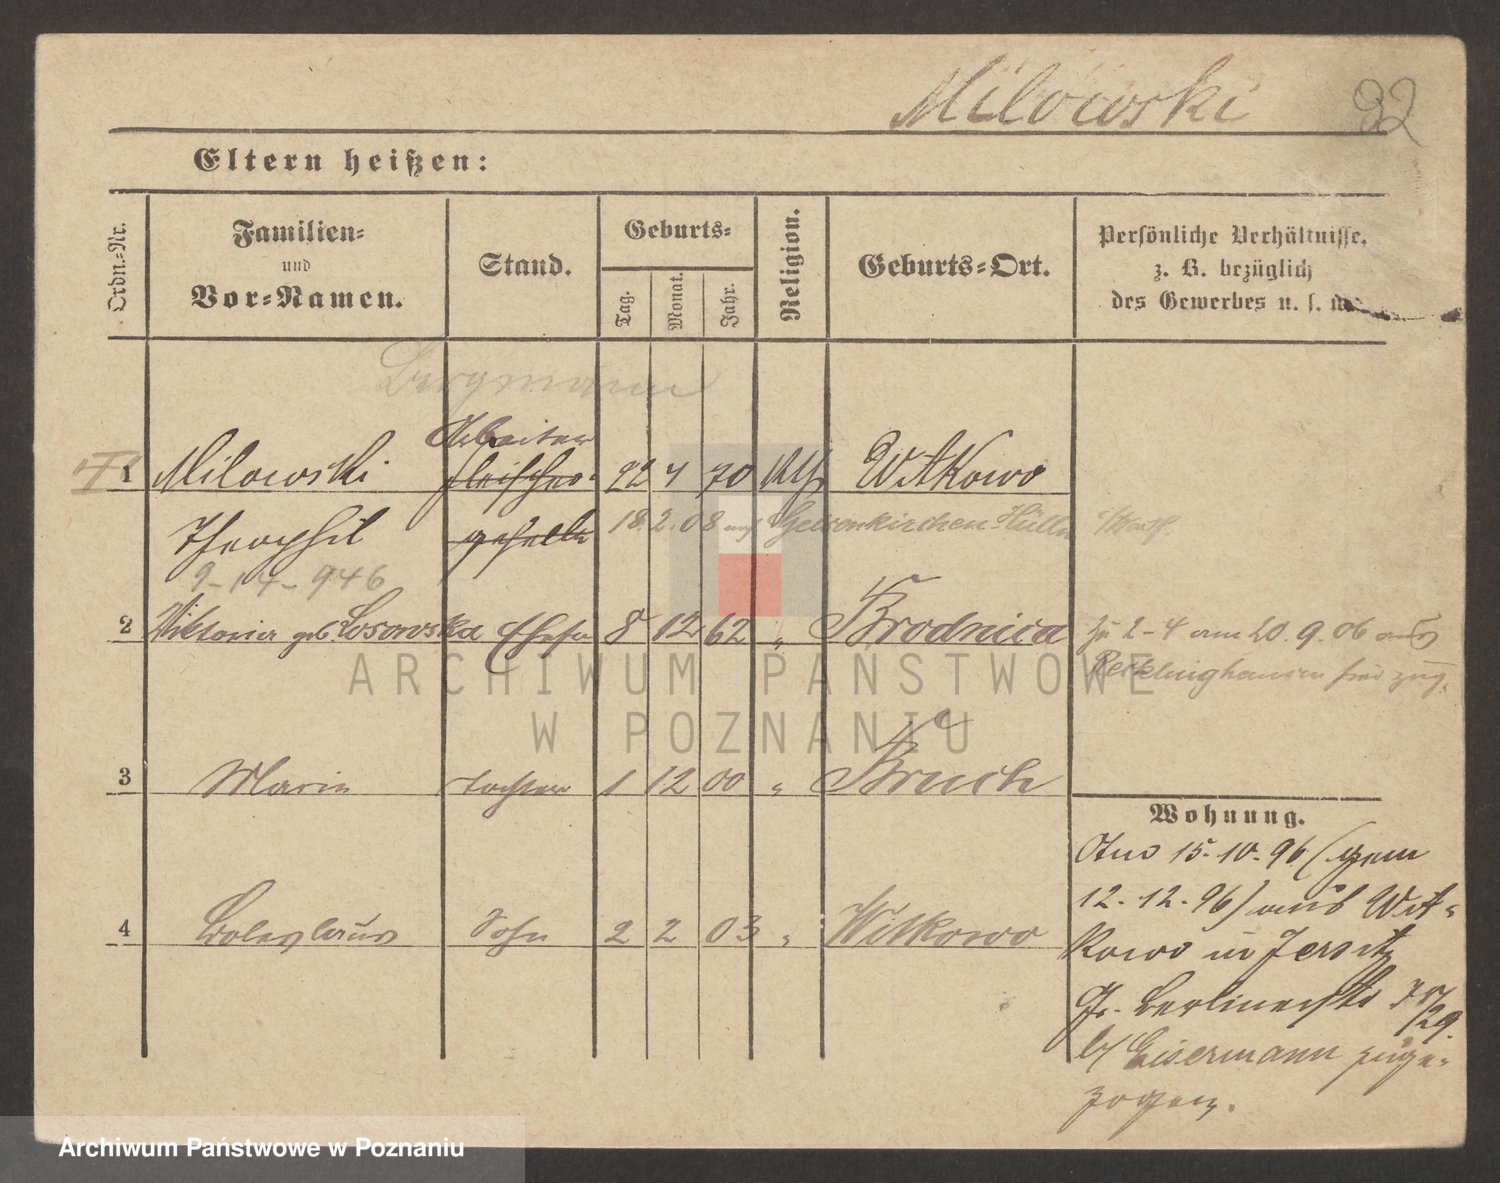 Milowski 92
Eltern heißen:
Ordn.-Nr.
Familien-
und
Vor-Namen.
Stand.
Geburts-
Tag.
Monat.
Jahr.
Religion.
Geburts-Ort.
Persönliche Verhältnisse,
z. B. bezüglich
des Gewerbes u. s. w.
Bergmann
Arbeiter
1 Milowski Fleischer- 22 4 70 kth Witkowo
Theophil geselle 18.2.08 nach Gelsenkirchen-Hüllen
9-14-946
2 Viktoria geb. Losowska Ehefr 8 12 62 " Brodnica zu 2-4 am 20.9.06 aus
Recklinghausen herzug.
3 Marie Tochter 1 12 00 " Bruch
Wohnung.
15.10.96 (gem
12.12.96) aus Wit-
4 Boleslaus Sohn 2 2 03 " Witkowo
kowo in Jersitz
Gr. Berlinerstr
b/ Eisermann zuge-
zogen.
ARCHIWUM PAŃSTWOWE
W POZNANIU
Archiwum Państwowe w Poznaniu